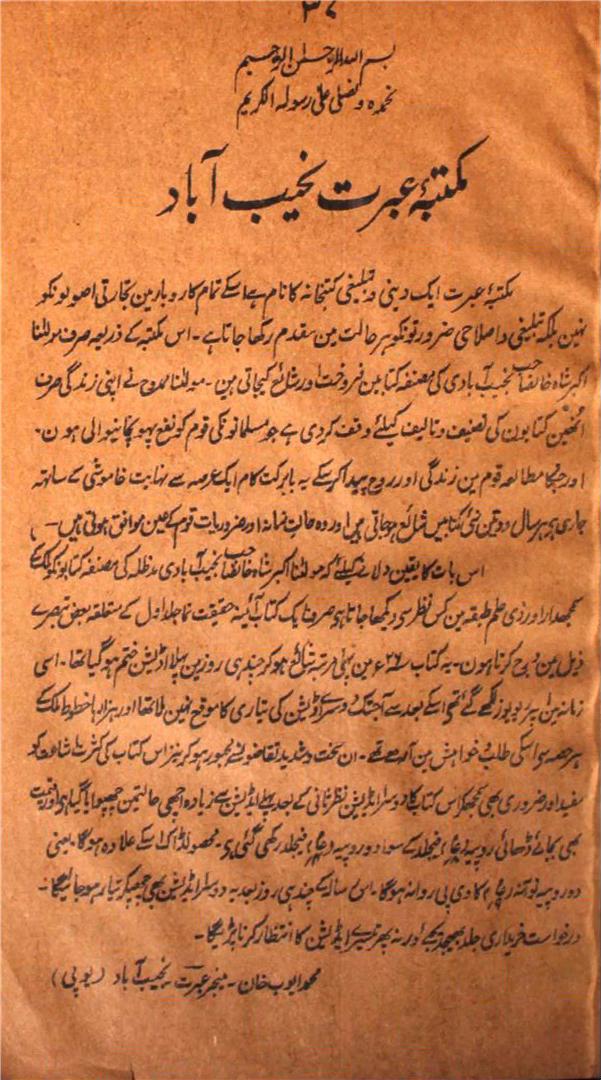 ۳۷
بسم اللہ الرحمٰن الرحیم
نحمدہ و نصلی علیٰ رسولہ الکریم
مکتبۂ عبرت نجیب آباد
مکتبۂ عبرت ایک دینی و تبلیغی کتبخانہ کا نام ہے اسکے تمام کاروبار مین تجارتی اصولونکو
نہین بلکہ تبلیغی و اصلاحی ضرورتونکو ہر حالت مین مقدم رکھا جاتا ہے۔ اس مکتبہ کے ذریعہ صرف مولٰنا
اکبر شاہ خانصاحب نجیب آبادی کی مصنفہ کتابین فروخت اور شائع کیجاتی ہین۔ مولٰنا ممدوح نے اپنی زندگی صرف
انھین کتابون کی تصنیف و تالیف کیلئے وقف کردی ہے جو مسلمانونکی قوم کو نفع پہونچانیوالی ہون۔
اور جنکا مطالعہ قوم مین زندگی اور روح پیدا کرسکے یہ بابرکت کام ایک عرصہ سے نہایت خاموشی کے ساتھ
جاری ہے ہر سال دو تین نئی کتابیں شائع ہوجاتی ہیں اور وہ حالتِ زمانہ اور ضروریات قوم کے عین موافق ہوتی ہیں۔
اس بات کا یقین دلانے کیلئے کہ مولٰنا اکبر شاہ خانصاحب نجیب آبادی مدظلہ کی مصنفہ کتابونکو ملک کے
سمجھدار اور ذی علم طبقہ مین کس نظر سے دیکھا جاتا ہے صرف ایک کتاب آئینہ حقیقت نما جلد اول کے متعلقہ بعض تبصرے
ذیل مین درج کرتا ہون۔ یہ کتاب ۲۶ء مین پہلی مرتبہ شائع ہو کر چند ہی روز مین پہلا اڈیشن ختم ہوگیا تھا۔ اسی
زمانہ مین یہ ریویوز لکھے گئے تھے اسکے بعد سے آجتک دوسرے اڈیشن کی تیاری کا موقع نہین ملا تھا اور ہزارہا خطوط ملک کے
ہر حصہ سے اسکی طلب و خواہش مین آئے تھے۔ ان سخت و شدید تقاضونسے مجبور ہو کر نیز اس کتاب کی کثرت اشاعت کو
مفید اور ضروری بھی سمجھکر اس کتاب کا دوسرا اڈیشن نظر ثانی کے بعد پہلے اڈیشن سے زیادہ اچھی حالت مین چھپوایا گیا ہے اور قیمت
بھی بجائے ڈھائی روپیہ فیجلد کے سوا دو روپیہ فیجلد رکھی گئی ہے۔ محصولڈاک اسکے علاوہ ہوگا۔ یعنی
دو روپیہ نو آنہ کا وی پی روانہ ہوگا۔ اس رسالہ کے چند ہی روز بعد یہ دوسرا اڈیشن بھی چھپکر تیار ہوجائیگا۔
درخواست خریداری جلد بھیجدیجئے ورنہ پھر تیسرے اڈیشن کا انتظار کرنا پڑیگا۔
محمد ایوب خان۔ منیجر عبرت۔ نجیب آباد (یوپی)